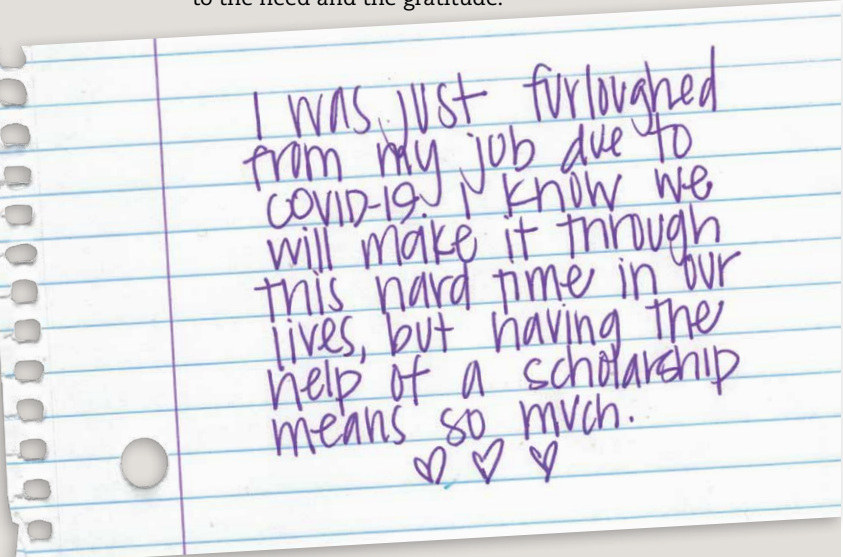 to the need and the gratitude.
I was just furloughed
from my job due to
COVID-19. I know we
will make it through
this hard time in our
lives, but having the
help of a scholarship
means so much.
♡ ♡ ♡